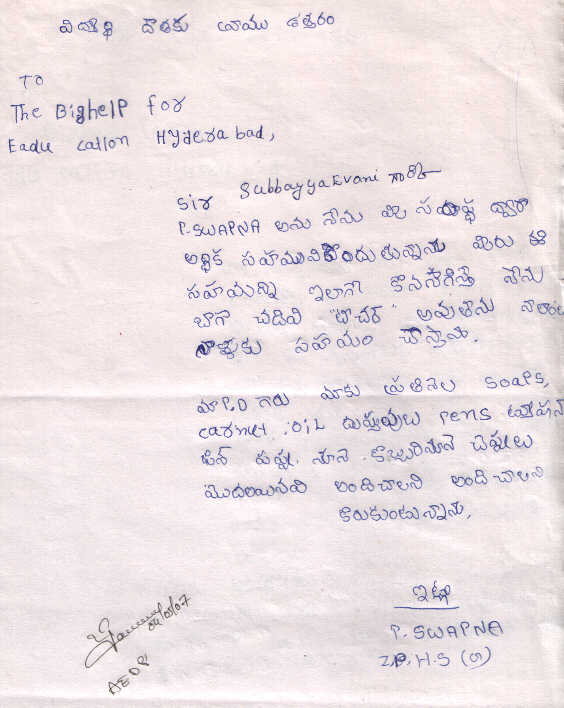 విద్యార్థి దాతకు వ్రాయు ఉత్తరం
TO
The Bighelp for
Eadu cation Hyderabad,
Sir SubbayyaEvani గారికి
P.SWAPNA అను నేను మీ సంస్థ ద్వారా
ఆర్థిక సహాయం పొందుతున్నాను మీరు ఈ
సహయన్ని ఇలాగే కొనసాగిస్తే నేను
బాగా చదివి "టీచర్" అవుతాను నాలాంటి
వాళ్ళకు సహయం చేస్తాను.
మా P.D గారు మాకు ప్రతినెల soaps,
carnut .oil దుప్పట్లు pens
పిన్ నూనె కొబ్బరినూనె చెప్పులు
మొదలయినవి అందించాలని అందించాలని
కోరుకుంటున్నాను.
ఇట్లు
P. SWAPNA
Z.P.H.S (గ)
04/05/07
AEOP